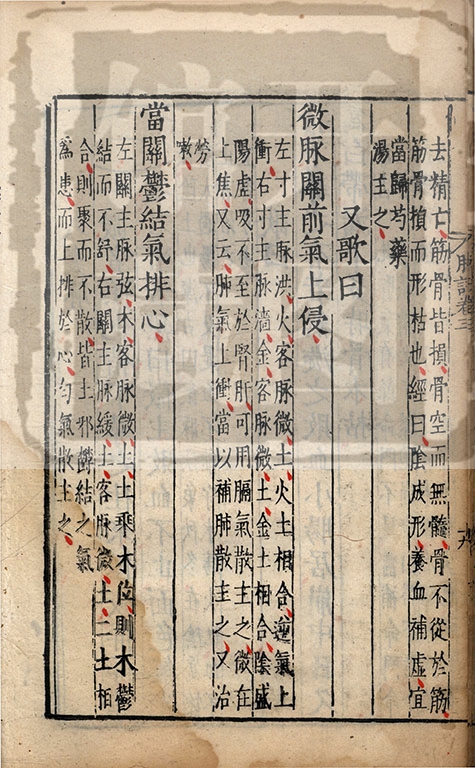 去精亡筋骨皆損骨空而無髓骨不從於筋
筋骨損而形枯也經曰陰成形養血補虛宜
當歸芍藥
湯主之
又歌曰
微脉關前氣上侵
左寸主脉洪火客脉微土火土相合逆氣上
衝右寸主脉濇金客脉微土金土相合陰盛
陽虛吸不至於腎肝可用膈氣散主之微在
上焦又云肺氣上衝當以補肺散主之又治
勞
嗽
當關鬱結氣排心
左關主脉弦木客脉微土土乘木位則木鬱
結而不舒右關主脉緩土客脉微土二土相
合則聚而不散皆主邪鬱結之氣
為患而上排於心勻氣散主之